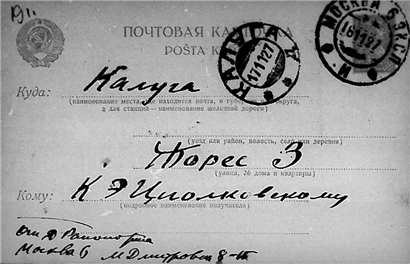 19 11
ПОЧТОВАЯ КАРТОЧКА
POŜTA K
КАЛУГА
17 11 27
МОСКВА 6 ЭКСП
16 11 27
Куда: Калуга
(наименование места, где находится почта, и губернии или округа,
а для станций—наименование железной дороги)
(уезд или район, волость, село или деревня)
Жорес 3
(улица, № дома и квартиры)
Кому: К Э Циолковскому
(подробное наименование получателя)
от Д Рапопорта
Москва 6 М Дмитровка 8-